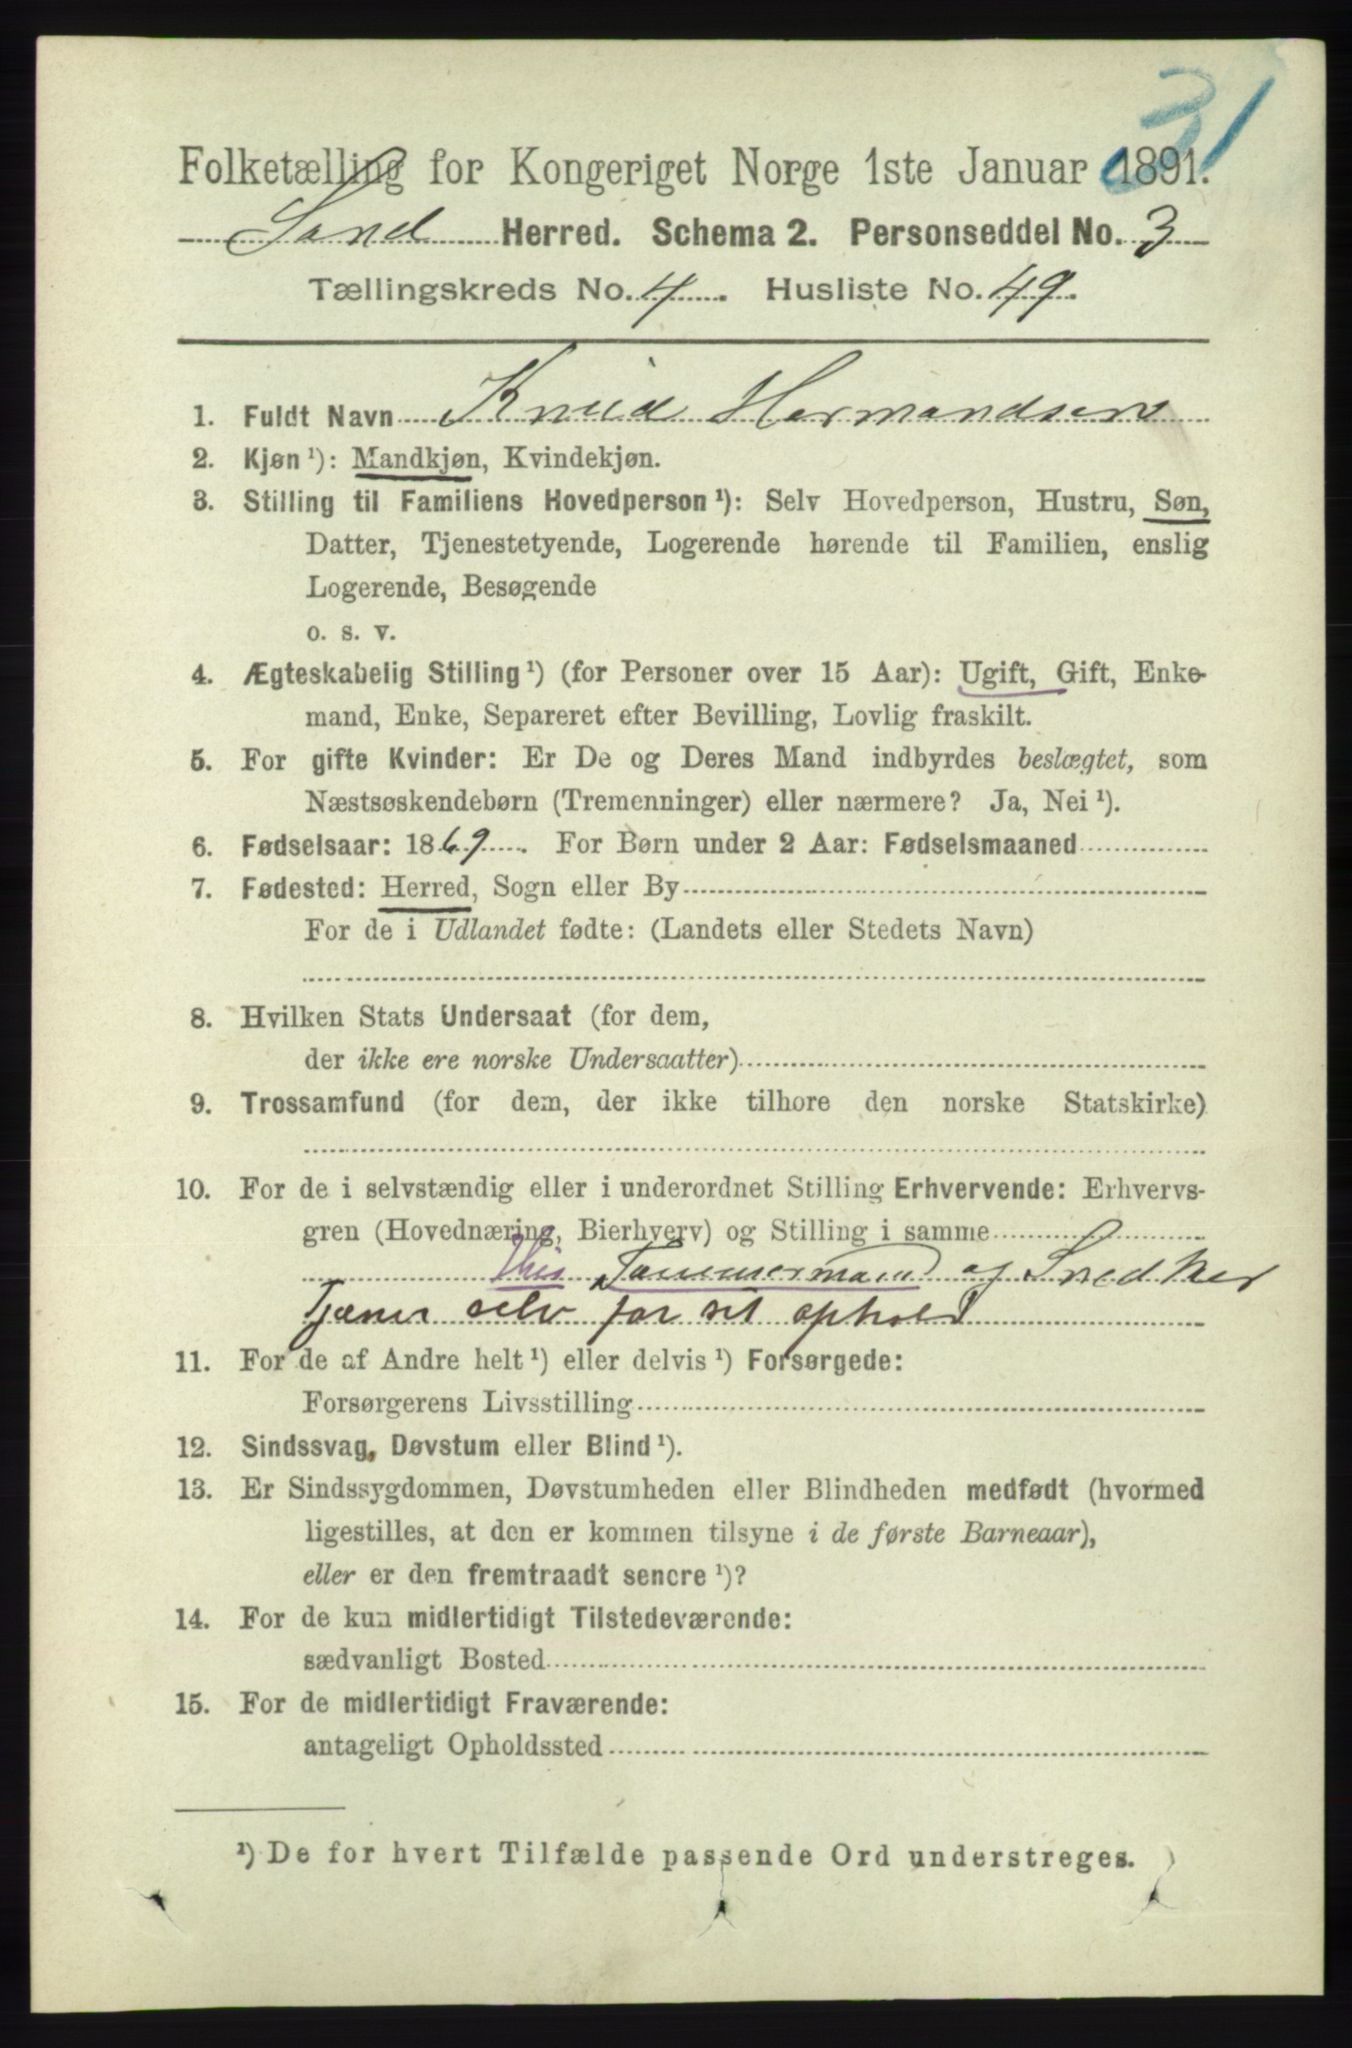 31
Folketælling for Kongeriget Norge 1ste Januar 1891.
Sand Herred. Schema 2. Personseddel No. 3
Tællingskreds No. 4. Husliste No. 49.
1. Fuldt Navn Knud Hermandsen
2. Kjøn ¹): Mandkjøn, Kvindekjøn.
3. Stilling til Familiens Hovedperson ¹): Selv Hovedperson, Hustru, Søn,
Datter, Tjenestetyende, Logerende hørende til Familien, enslig
Logerende, Besøgende
o. s. v.
4. Ægteskabelig Stilling ¹) (for Personer over 15 Aar): Ugift, Gift, Enke-
mand, Enke, Separeret efter Bevilling, Lovlig fraskilt.
5. For gifte Kvinder: Er De og Deres Mand indbyrdes beslægtet, som
Næstsøskendebørn (Tremenninger) eller nærmere? Ja, Nei ¹).
6. Fødselsaar: 1869. For Børn under 2 Aar: Fødselsmaaned
7. Fødested: Herred, Sogn eller By
For de i Udlandet fødte: (Landets eller Stedets Navn)
8. Hvilken Stats Undersaat (for dem,
der ikke ere norske Undersaatter)
9. Trossamfund (for dem, der ikke tilhøre den norske Statskirke)
10. For de i selvstændig eller i underordnet Stilling Erhvervende: Erhvervs-
gren (Hovednæring, Bierhverv) og Stilling i samme
Hus Tømmermand og Snedker
Tjæner selv for sit ophold
11. For de af Andre helt ¹) eller delvis ¹) Forsørgede:
Forsørgerens Livsstilling
12. Sindssvag, Døvstum eller Blind ¹).
13. Er Sindssygdommen, Døvstumheden eller Blindheden medfødt (hvormed
ligestilles, at den er kommen tilsyne i de første Barneaar),
eller er den fremtraadt senere ¹)?
14. For de kun midlertidigt Tilstedeværende:
sædvanligt Bosted
15. For de midlertidigt Fraværende:
antageligt Opholdssted
¹) De for hvert Tilfælde passende Ord understreges.